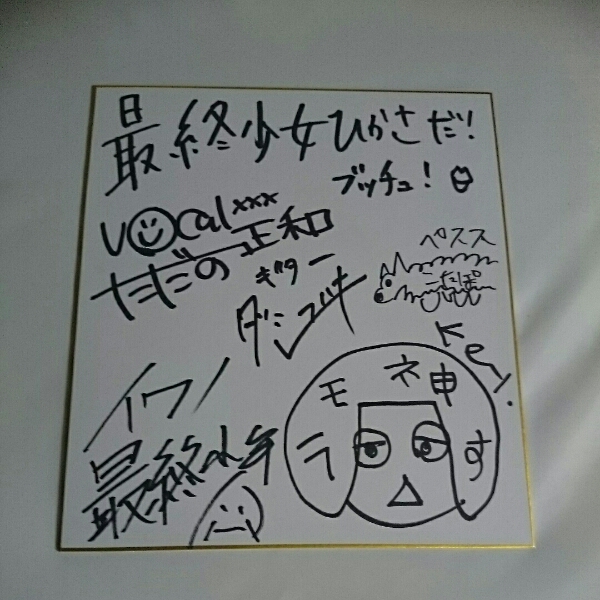 最終少女ひかさだ!
ブッチュ!
vocalxxx
ただの正和
ギター
ダシュキ
ペスス
こたぽ
イワノ
Key.
モネ神
ラ
す
最終少年